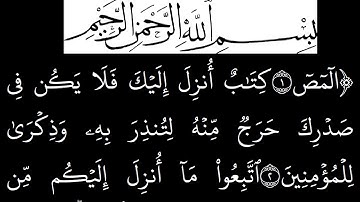 بِسْمِ ٱللَّهِ ٱلرَّحْمَٰنِ ٱلرَّحِيمِ
﴿الٓمٓصٓ ١ كِتَٰبٌ أُنزِلَ إِلَيْكَ فَلَا يَكُن فِى
صَدْرِكَ حَرَجٌ مِّنْهُ لِتُنذِرَ بِهِۦ وَذِكْرَىٰ
لِلْمُؤْمِنِينَ ٢ ٱتَّبِعُوا۟ مَآ أُنزِلَ إِلَيْكُم مِّن